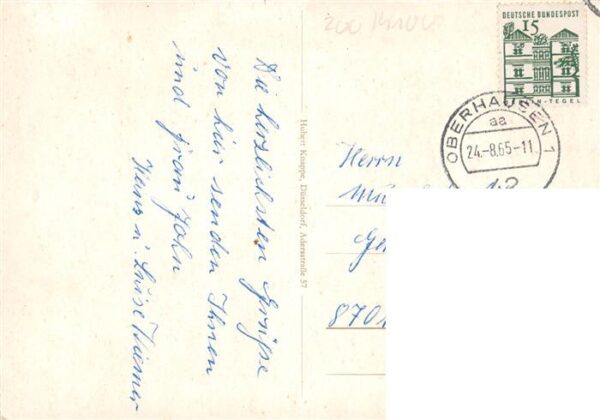 Die herzlichsten Grüße
von hier senden Ihnen
und Frau John
Hans u. Luise
Hubert Knappe, Düsseldorf, Adersstraße 57
DEUTSCHE BUNDESPOST
15
TEGEL
OBERHAUSEN 1
aa
24.-8.65-11
Herrn
8701